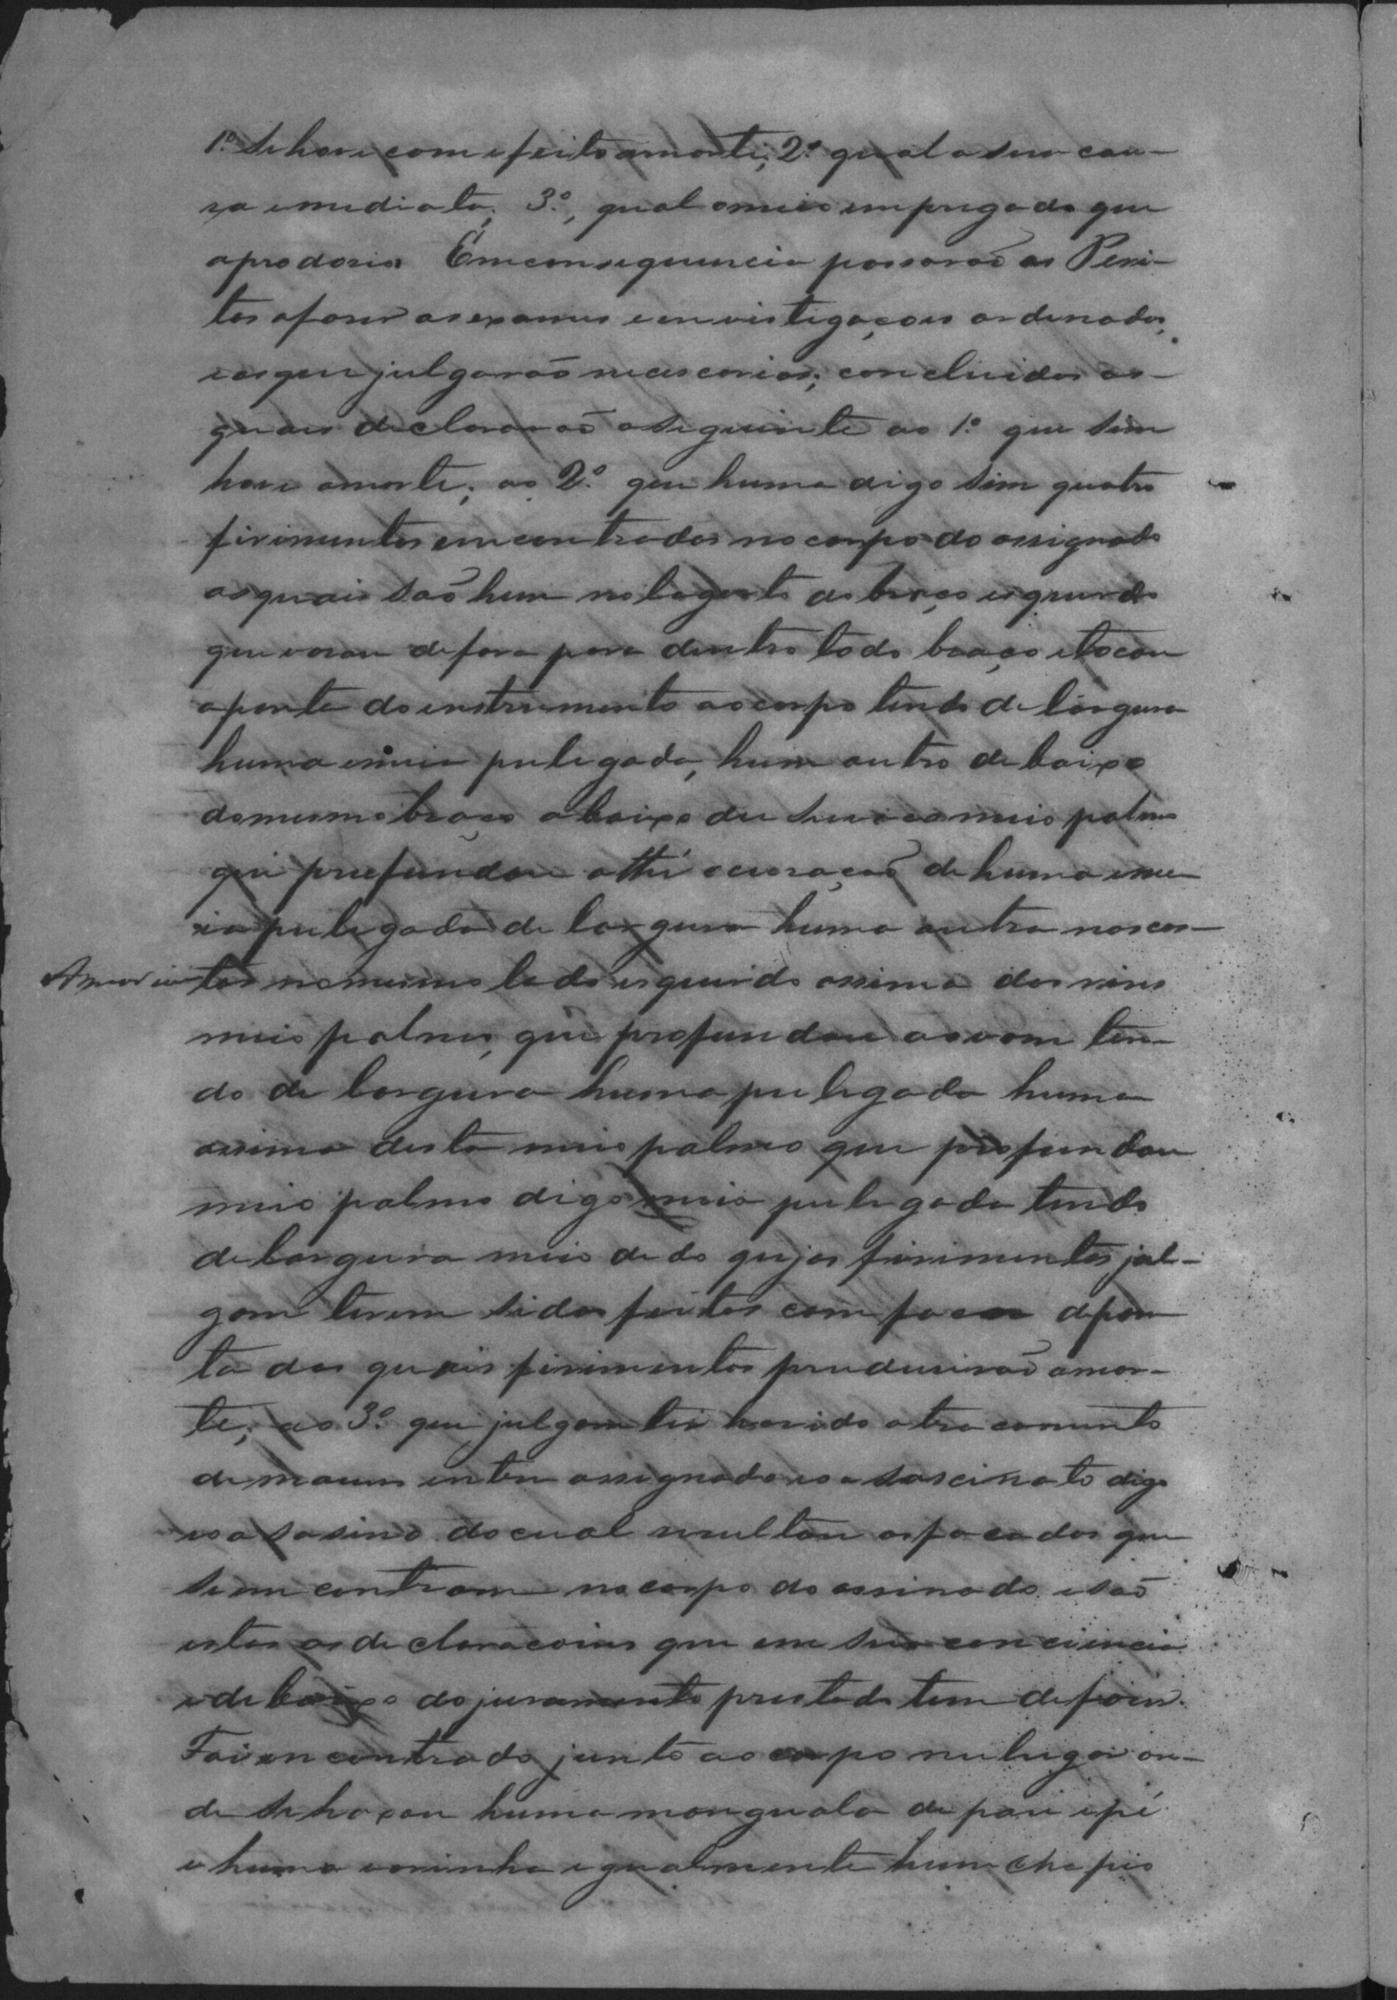 1.º Se hove com efeito amorte; 2.º qual a sua cau-
za emediata; 3.º, qual omeio empregado que
aprodosio. Em consequencia passaraõ os Peri-
tos afaser os exames einvistigaçois ordenados,
e os que julgaraõ necescarios; concluidos os-
quais declararaõ oseguinte ao 1.º que sim
hove amorte; ao 2.º que huma digo sim quatro
firimentos emcontrados no corpo do assignado
os quais saõ hum no lagarto do braço esquerdo
que varou defora para dentro todo braço etocou
aponta do enstrumento ao corpo tendo de largura
huma emeia pulegada, hum outro debaixo
do mesmo braço abaixo do meio palmo
que prufundou athé ocoraçaõ de huma emei
ia pulegada de largura huma outra nas cos-
tas no mesmo lado esquerdo assima dos rins
meio palmo, que profundou ao vam ten-
do de largura huma pulegada huma
assima desta meio palmo que profundou
meio palmo digo meia pulegada tendo
de largura meio dedo qujos firimentos jul-
gam terem sidos feitos com faca depon
ta dos quais firimentos produsiraõ amor-
te; ao 3.º que julgam ter havido atracamento
de maons entre assignado eo asascinato digo
eo asasino do cual resultou as facadas que
se emcontram no corpo do assinado esaõ
estas as declaracoins que em sua conciencia
edebaixo do juramento prestado tem defaser.
Foi encontrado junto ao corpo no lugar on-
de se haxou huma manguala de pau ipé
e huma bainha egualmente hum chapeo